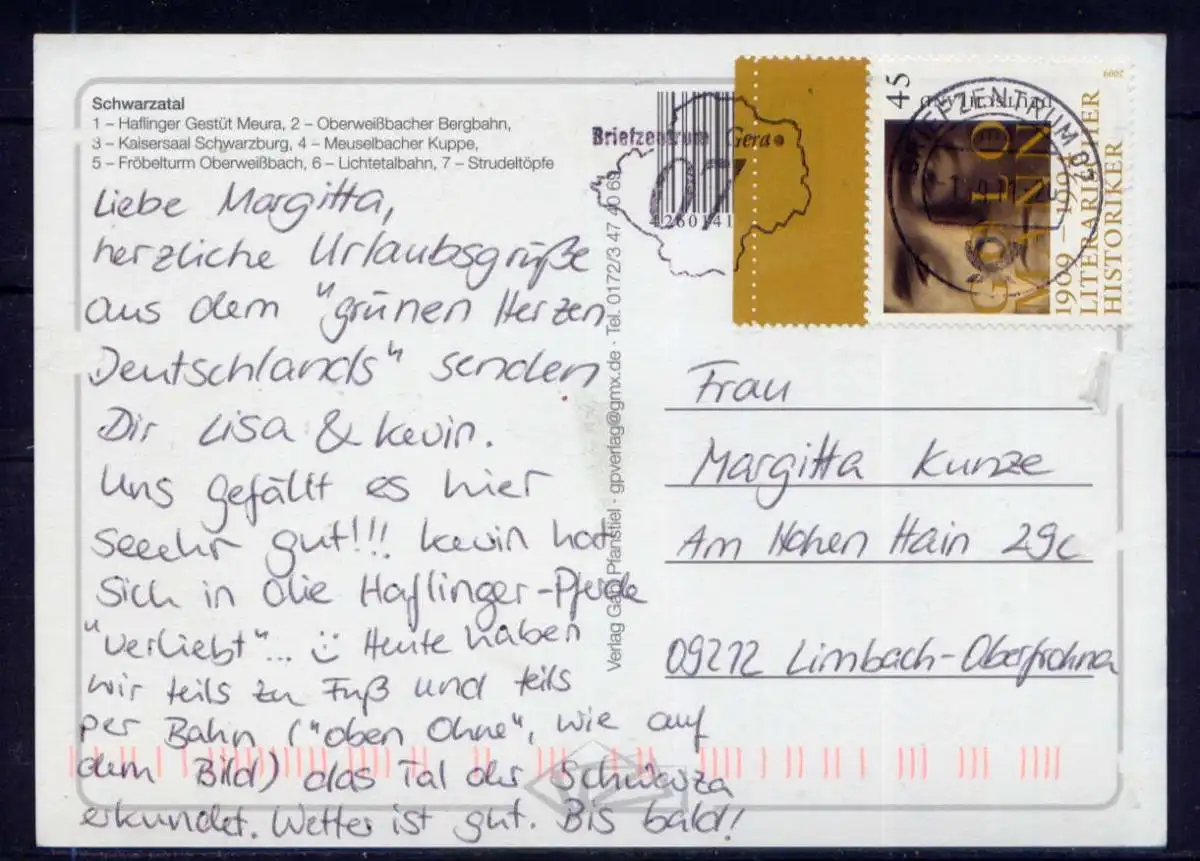 Schwarzatal
1 – Haflinger Gestüt Meura, 2 – Oberweißbacher Bergbahn,
3 – Kaisersaal Schwarzburg, 4 – Meuselbacher Kuppe,
5 – Fröbelturm Oberweißbach, 6 – Lichtetalbahn, 7 – Strudeltöpfe
Liebe Margitta,
herzliche Urlaubsgrüße
aus dem "grünen Herzen
Deutschlands" senden
Dir Lisa & Kevin.
Uns gefällt es hier
seeehr gut!!! Kevin hat
sich in die Haflinger-Pferde
"verliebt"... Heute haben
wir teils zu Fuß und teils
per Bahn ("oben ohne", wie auf
dem Bild) das Tal der Schwarza
erkundet. Wetter ist gut. Bis bald!
Verlag Gabi Pfanstiel · gpverlag@gmx.de · Tel. 0172/3 47 46 69
Briefzentrum Gera
07
4260141
45
DEUTSCHLAND
2009
GOLO
MANN
1909–1994
LITERARISCHER
HISTORIKER
BRIEFZENTRUM 07
Frau
Margitta Kunze
Am Hohen Hain 29c
09212 Limbach-Oberfrohna